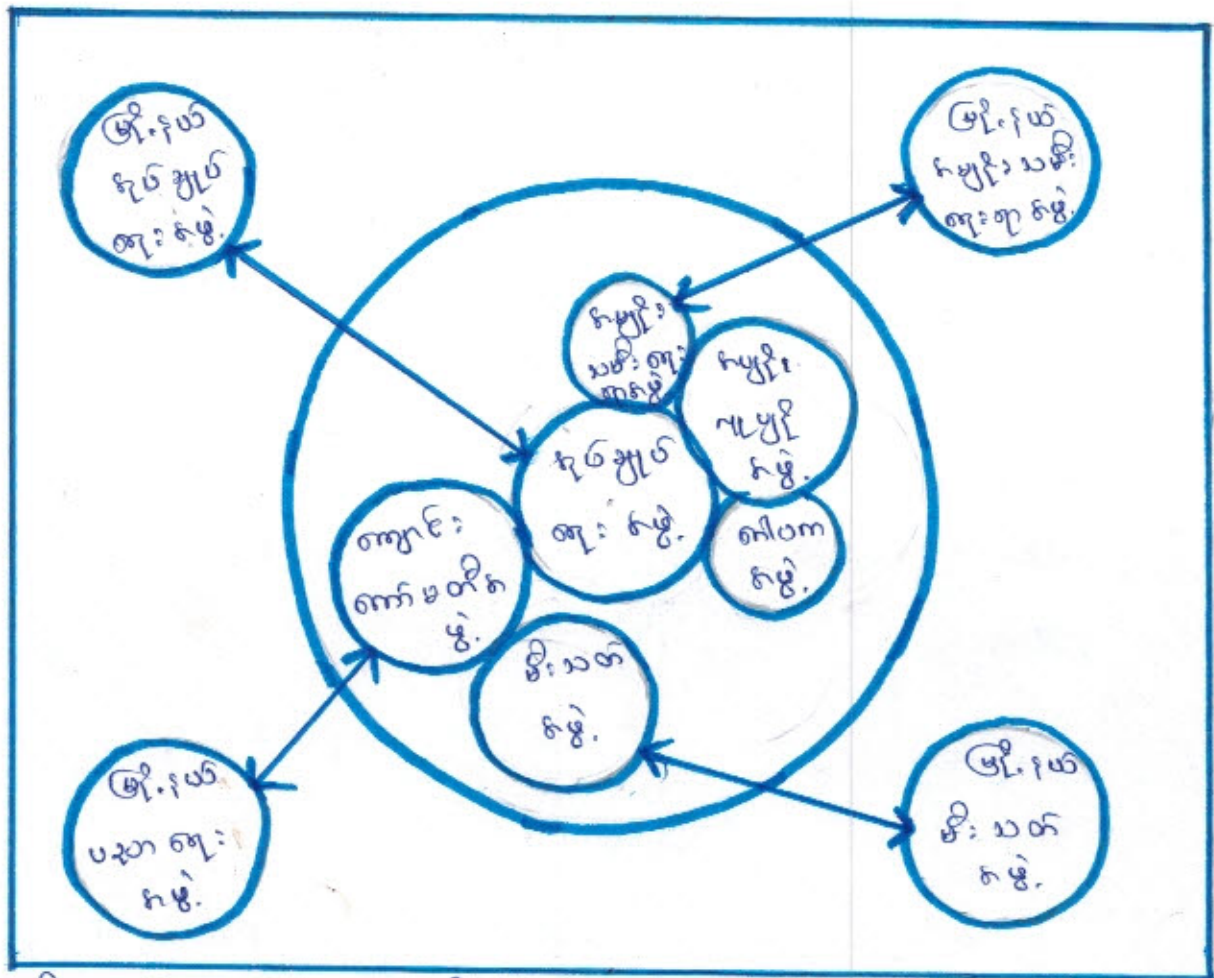 မြို့နယ်
အုပ်ချုပ်
ရေးအဖွဲ့
မြို့နယ်
အမျိုးသမီး
ရေးရာအဖွဲ့
အမျိုး
သမီးရေး
ရာအဖွဲ့
အမျိုး
အဖွဲ့
အုပ်ချုပ်
ရေးအဖွဲ့
ကျောင်း
ကော်မတီအ
ဖွဲ့
ဒါယကာ
အဖွဲ့
မီးသတ်
အဖွဲ့
မြို့နယ်
ပညာရေး
အဖွဲ့
မြို့နယ်
မီးသတ်
အဖွဲ့